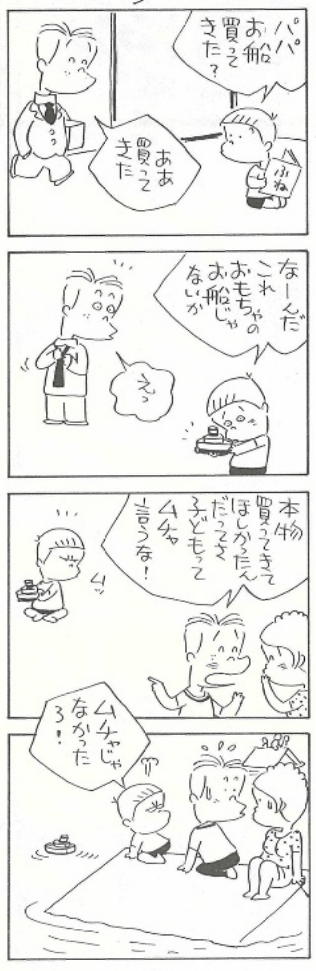 パパ
お船
買って
きた?
ふね
ああ
買って
きた
なーんだ
これ
おもちゃの
お船じゃ
ないか
えっ
本物
買ってきて
ほしかったん
だってさ
子どもって
ムチャ
言うな!
ムッ
ムチャじゃ
なかった
ろ!